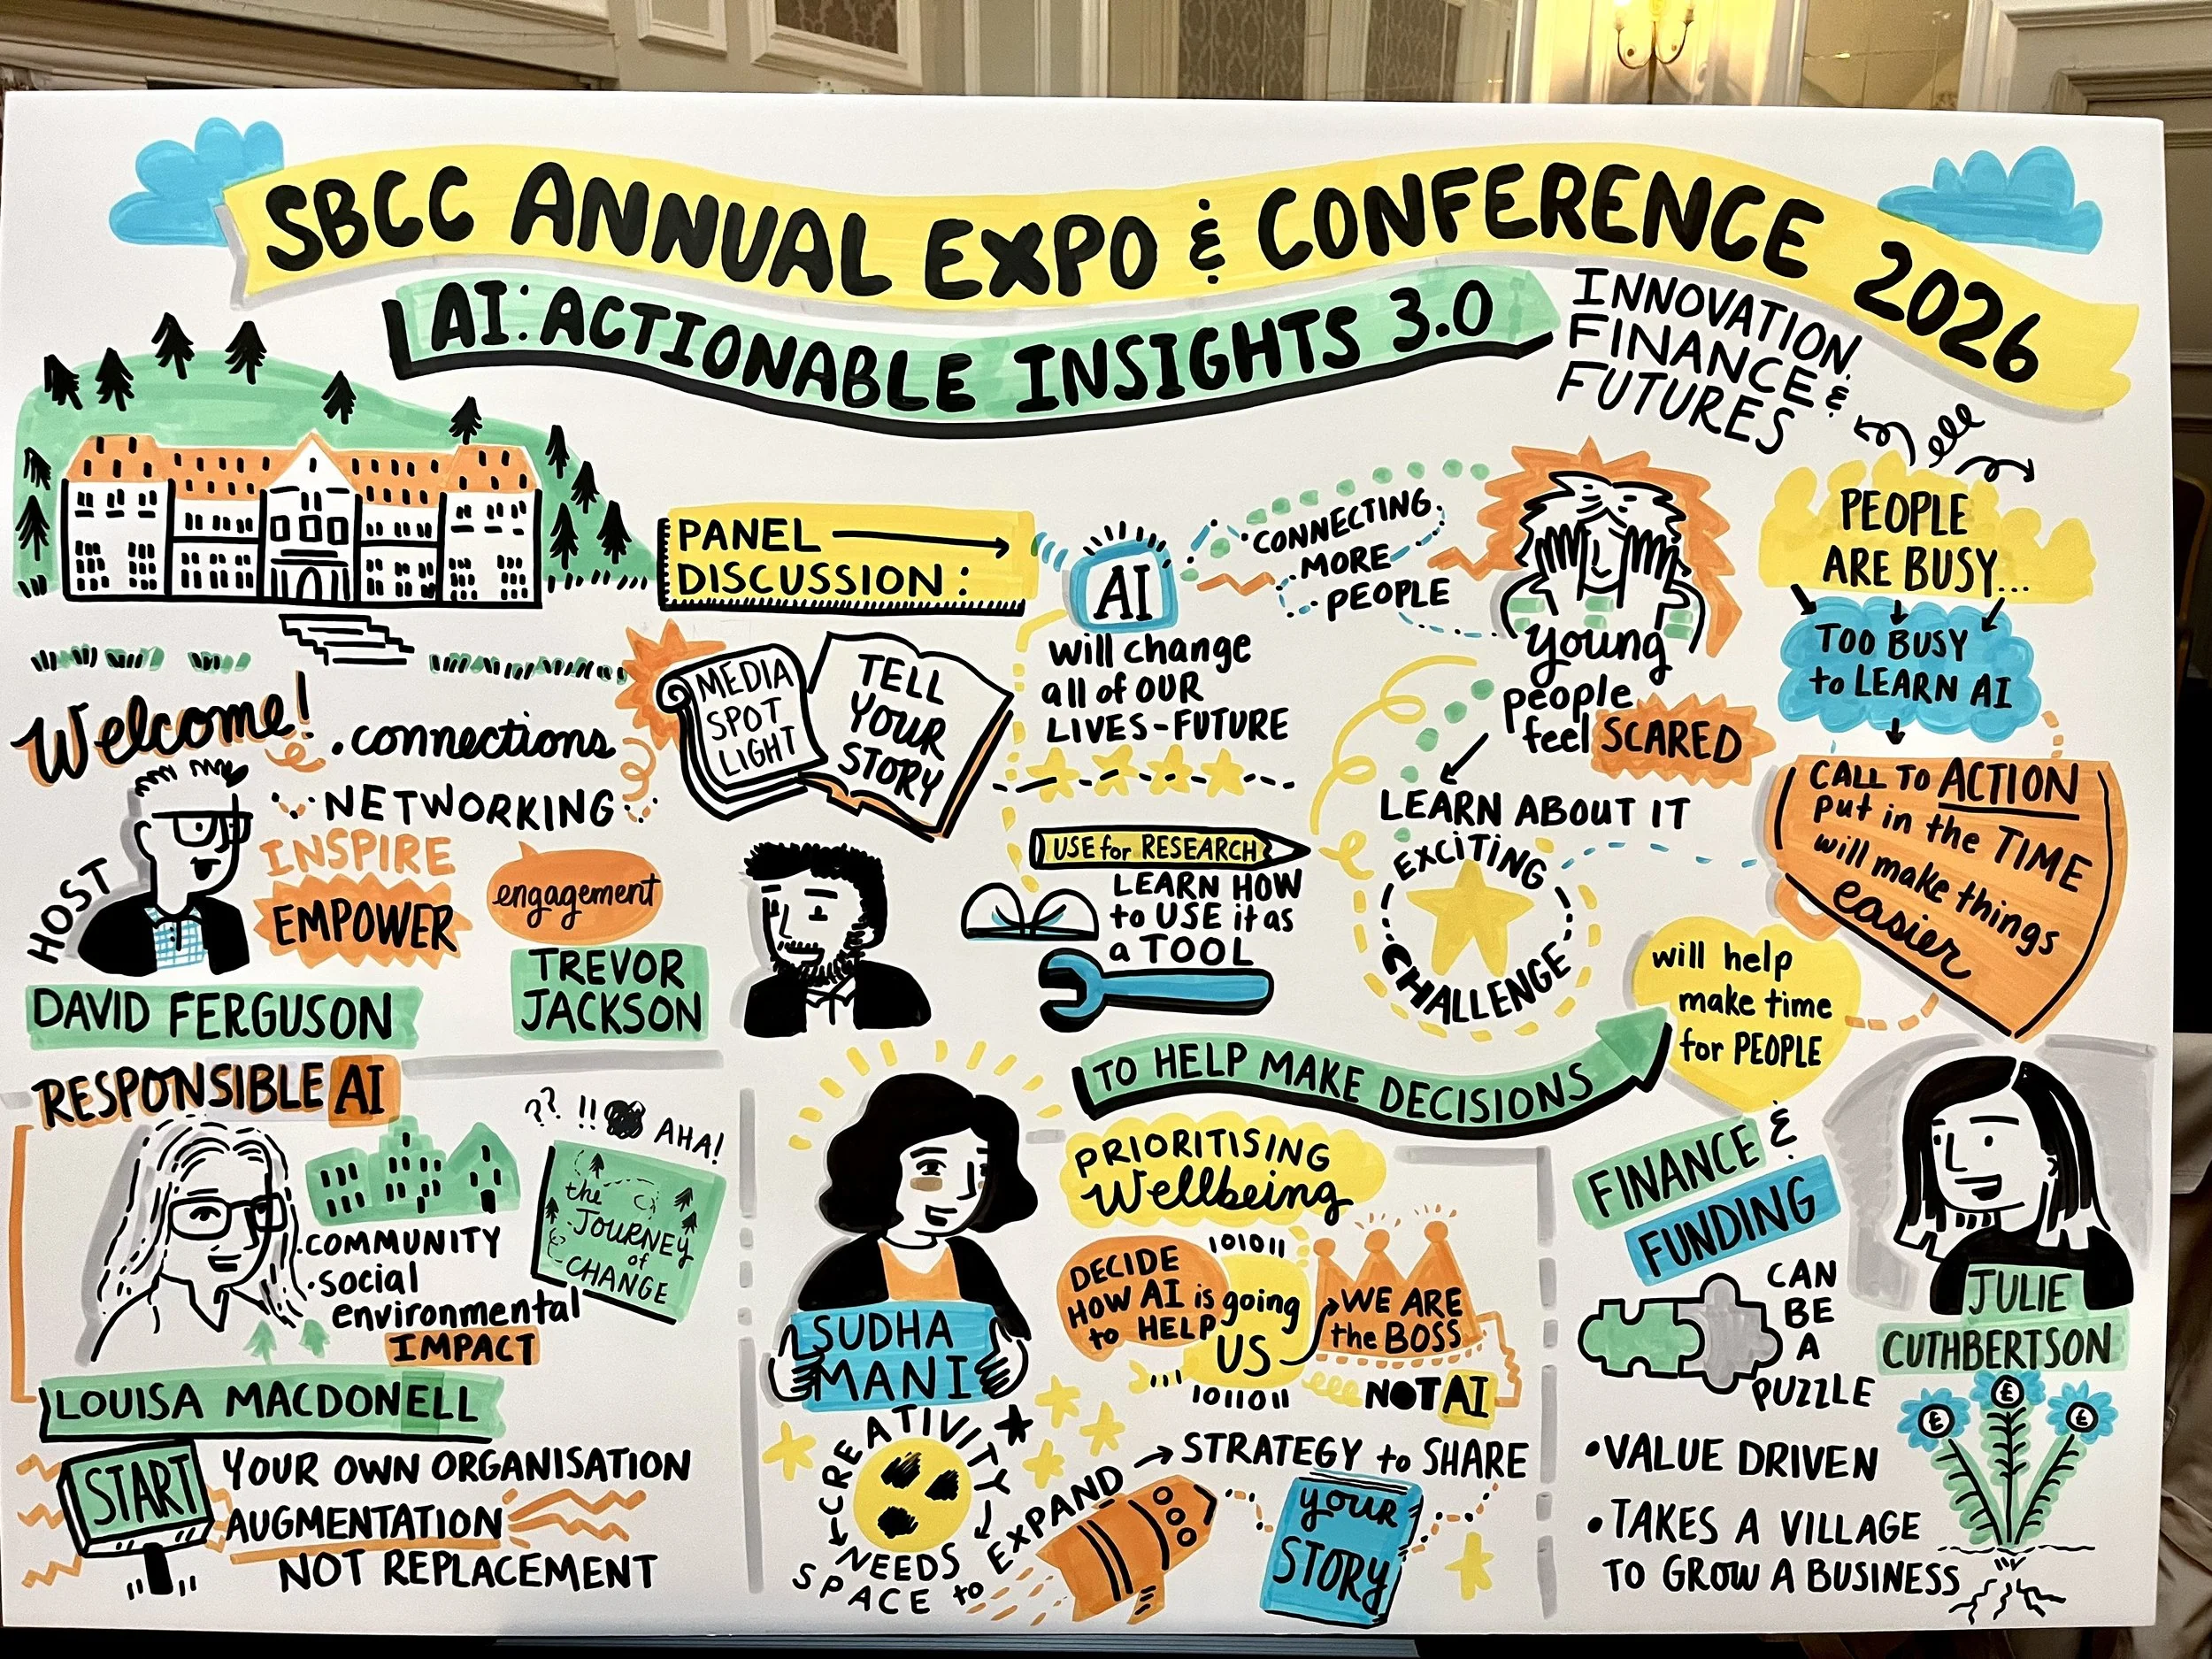 SBCC ANNUAL EXPO & CONFERENCE 2026
AI: ACTIONABLE INSIGHTS 3.0
INNOVATION,
FINANCE &
FUTURES
Welcome!
.connections
NETWORKING
INSPIRE
EMPOWER
HOST
DAVID FERGUSON
engagement
TREVOR
JACKSON
PANEL
DISCUSSION:
MEDIA
SPOT
LIGHT
TELL
YOUR
STORY
AI
will change
all of OUR
LIVES-FUTURE
CONNECTING
MORE
PEOPLE
young
people
feel SCARED
LEARN ABOUT IT
EXCITING
CHALLENGE
USE for RESEARCH
LEARN HOW
to USE it as
a TOOL
TO HELP MAKE DECISIONS
PEOPLE
ARE BUSY...
TOO BUSY
to LEARN AI
CALL TO ACTION
put in the TIME
will make things
easier
will help
make time
for PEOPLE
RESPONSIBLE AI
?? !! AHA!
the
JOURNEY
of
CHANGE
.COMMUNITY
.social
environmental
IMPACT
LOUISA MACDONELL
START
YOUR OWN ORGANISATION
AUGMENTATION
NOT REPLACEMENT
SUDHA
MANI
PRIORITISING
Wellbeing
DECIDE
HOW AI is going
to HELP
US
101011
1011011
WE ARE
the BOSS
NOT AI
CREATIVITY
NEEDS
SPACE to EXPAND
STRATEGY to SHARE
your
STORY
&
FINANCE
FUNDING
CAN
BE
A
PUZZLE
JULIE
CUTHBERTSON
£ £ £
•VALUE DRIVEN
•TAKES A VILLAGE
TO GROW A BUSINESS